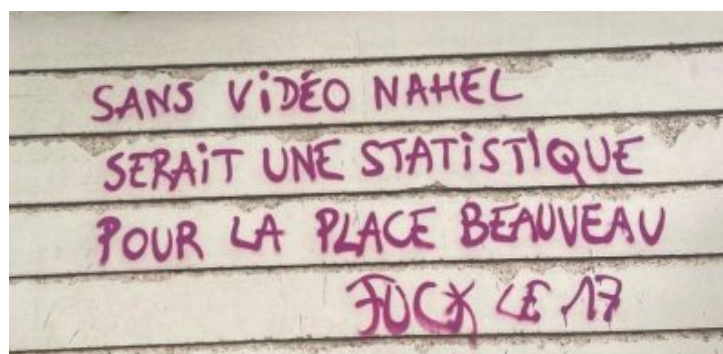 SANS ViDÉO NAHEL
SERAiT UNE STATiSTIQUE
POUR LA PLACE BEAUVEAU
FUCK LE 17